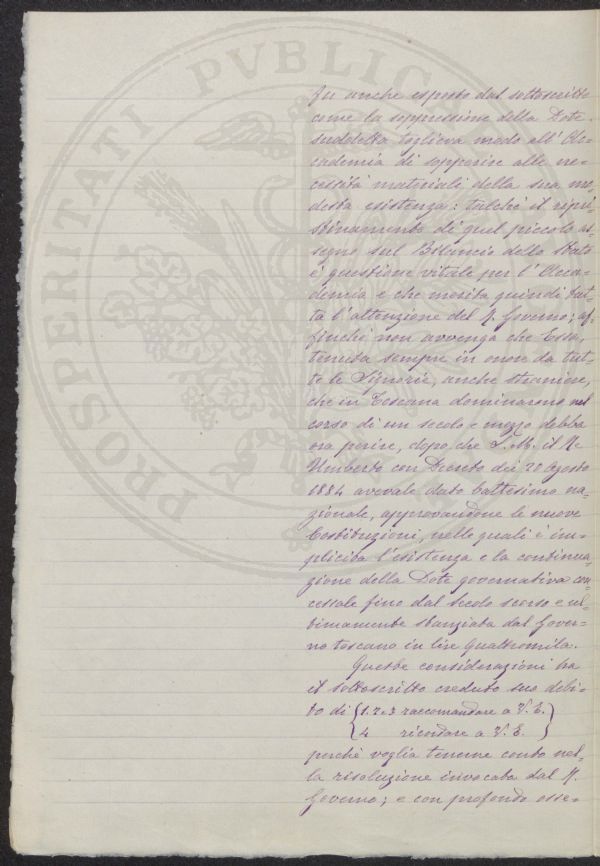 PROSPERITATI PVBLICAE
fu anche esposto dal sottoscritto
come la soppressione della Dote
suddetta toglieva modo all'Ac-
cademia di sopperire alle ne-
cessità materiali della sua mo-
desta esistenza: talchè il ripri-
stinamento di quel piccolo as-
segno sul Bilancio dello Stato
è questione vitale per l'Acca-
demia e che merita quindi tut-
ta l'attenzione del R. Governo; af-
finchè non avvenga che Essa,
tenuta sempre in onore da tut-
te le Signorie, anche straniere,
che in Toscana dominarono nel
corso di un secolo e mezzo debba
ora perire, dopo che S. M. il Re
Umberto con Decreto dei 20 Agosto
1884 avevale dato battesimo na-
zionale, approvandone le nuove
Costituzioni, nelle quali è im-
plicita l'esistenza e la continua-
zione della Dote governativa con-
cessale fino dal Secolo scorso e ul-
timamente stanziata dal Gover-
no toscano in lire Quattromila.
Queste considerazioni ha
il sottoscritto creduto suo debi-
to di {1.2.e3 raccomandare a V. E.}
{4 ricordare a V. E.}
perchè voglia tenerne conto nel-
la risoluzione invocata dal R.
Governo; e con profondo osse-